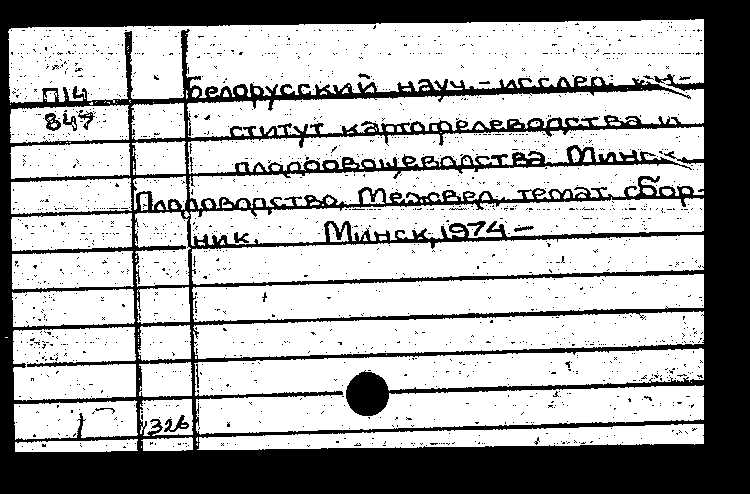 П14
847
Белорусский науч.-исслед. ин-
ститут картофелеводства и
плодоовощеводства. Минск.
Плодоводство. Межвед. темат. сбор-
ник. Минск, 1974 —
1 326